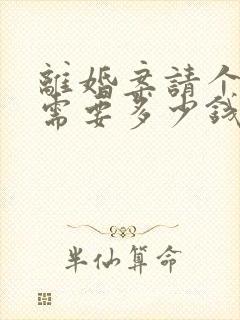 離婚案請个
需要多少錢
半仙算命